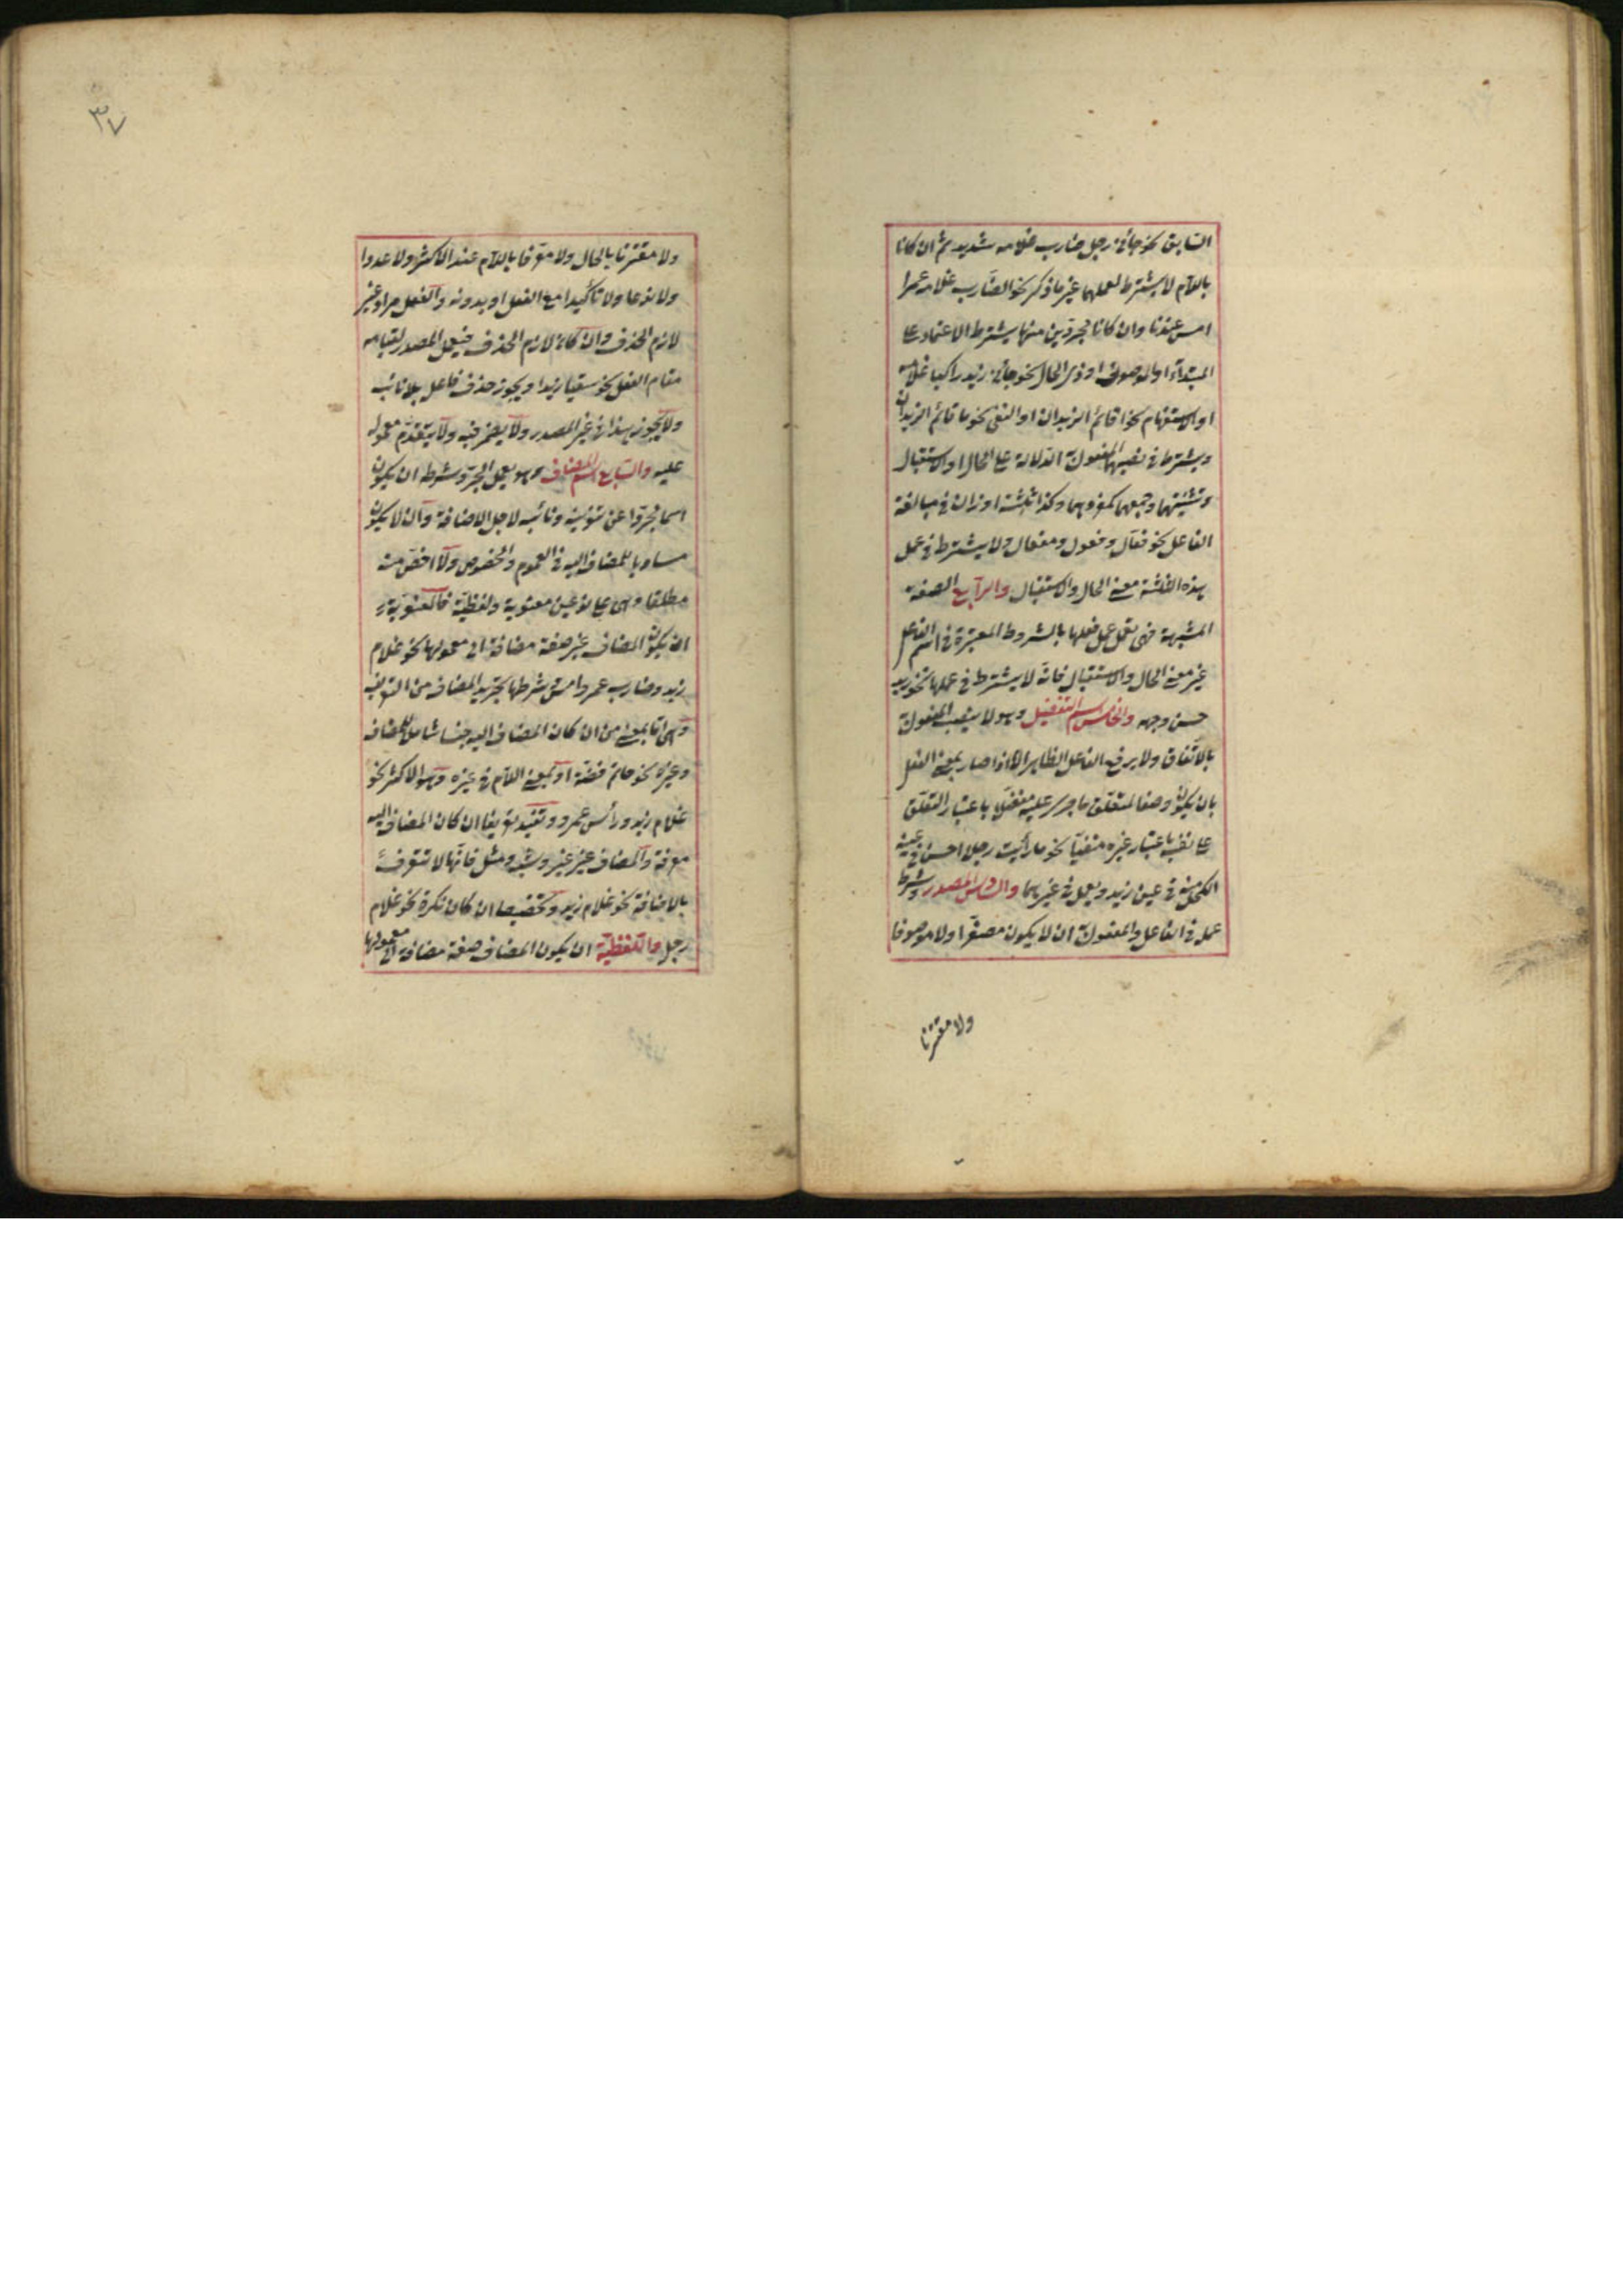 السابق نحو جائني رجل ضارب غلامه شديد ثم ان كانا
باللام لا يشترط لعملهما غير ما ذكر نحو الضارب غلامه عمرا
امس عندنا وان كانا مجردين منها يشترط الاعتماد على
المبتداء او الموصوف او ذى الحال نحو جائني زيد راكبا غلامه
او الاستفهام نحو اقائم الزيدان او النفى نحو ما قائم الزيدان
ويشترط فى نصبهما المفعول به الدلالة على الحال او الاستقبال
وتثنيتهما وجمعهما كمفردهما وكذا ثلثة اوزان فى مبالغة
الفاعل نحو فعّال وفعول ومفعال ولا يشترط فى عمل
هذه الثلثة معنى الحال والاستقبال والرابع الصفة
المشبهة فهى تعمل عمل فعلها بالشروط المعتبرة فى اسم الفاعل
غير معنى الحال والاستقبال فانه لا يشترط فى عملها نحو زيد
حسن وجهه والخامس اسم التفضيل وهو لا ينصب المفعول به
بالاتفاق ولا يرفع الفاعل الظاهر الا اذا صار بمعنى الفعل
بان يكون وصفا لمتعلق ما جرى عليه مفضلا باعتبار التعلق
على نفسه باعتبار غيره منفيا نحو ما رأيت رجلا احسن فى عينه
الكحل منه فى عين زيد ويعمل فى غيرهما والسادس المصدر وشرط
عمله فى الفاعل والمفعول به ان لا يكون مصغرا ولا موصوفا
ولا مقترنا
٣٧
ولا مقترنا بالحال ولا معرفا باللام عند الاكثر ولا عددا
ولا نوعا ولا تاكيدا مع الفعل او بدونه والفعل مراد غير
لازم الحذف وان كان لازم الحذف فيعمل المصدر لقيامه
مقام الفعل نحو سقيا زيدا ويجوز حذف فاعله بلا نائب
ولا يجوز هذا فى غير المصدر ولا يضمر فيه ولا يتقدم معموله
عليه والسابع الاسم المضاف وهو يعمل الجر وشرطه ان يكون
اسما مجردا عن تنوينه ونائبه لاجل الاضافة وان لا يكون
مساويا للمضاف اليه فى العموم والخصوص ولا اخص منه
مطلقا وهى على نوعين معنوية ولفظية فالمعنوية
ان يكون المضاف غير صفة مضافة الى معمولها نحو غلام
زيد وضارب عمرو امس وشرطها تجريد المضاف من التعريف
وهى اما بمعنى من ان كان المضاف اليه جنسا شاملا للمضاف
وغيره نحو خاتم فضة او بمعنى اللام فى غيره وهو الاكثر نحو
غلام زيد ورأس عمرو وتفيد تعريفا ان كان المضاف اليه
معرفة والمضاف غير غير وشبه ومثل فانها لا تتعرف
بالاضافة نحو غلام زيد وتخصيصا ان كان نكرة نحو غلام
رجل واللفظية ان يكون المضاف صفة مضافة الى معمولها